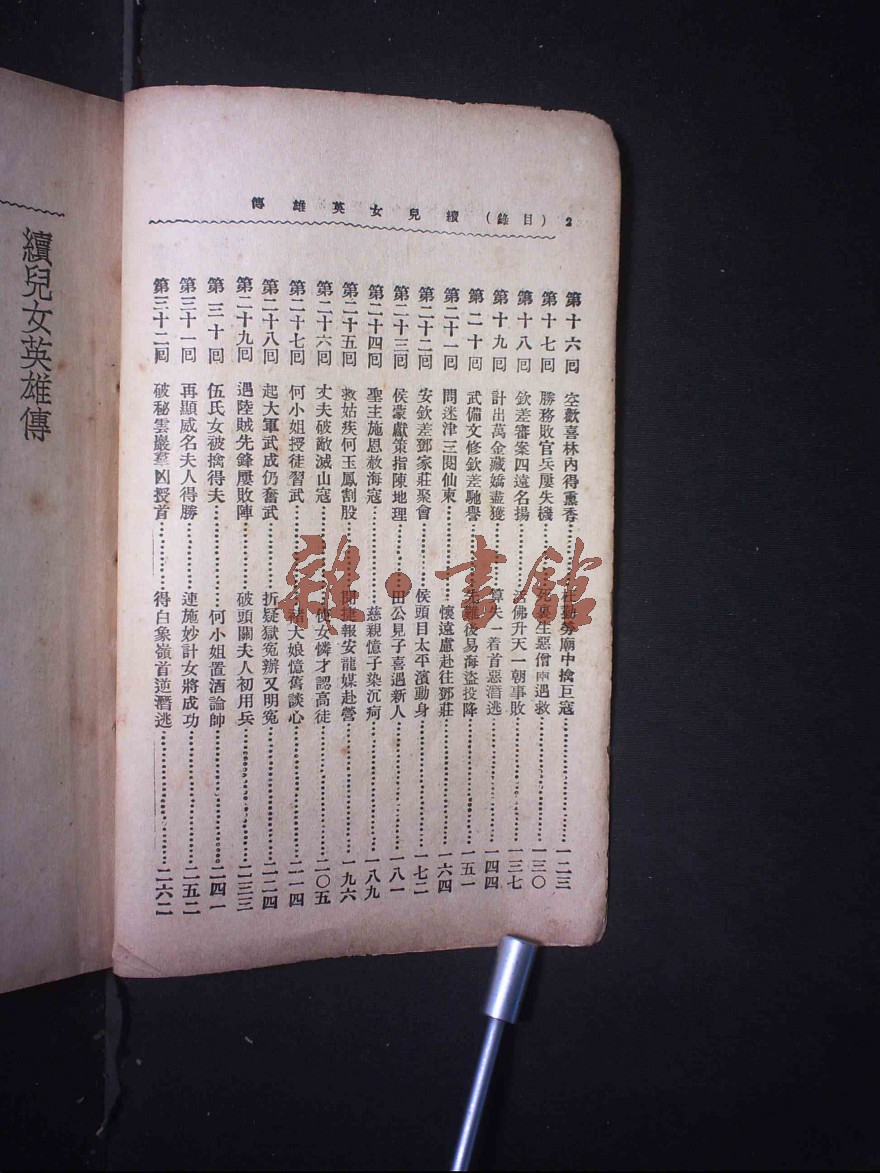 續兒女英雄傳
2 (目錄) 續兒女英雄傳
第十六回 空歡喜林內得薰香……勤勞廟中擒巨寇……一二三
第十七回 勝務敗官兵屢失機……死裏生惡僧兩遇救……一三〇
第十八回 欽差審案四遠名揚……活佛升天一朝事敗……一三七
第十九回 計出萬金藏嬌盡獲……算失一着首惡潛逃……一四四
第二十回 武備文修欽差馳譽……先難後易海盜投降……一五一
第二十一回 問迷津三閱仙柬……懷遠慮赴往鄧莊……一六四
第二十二回 安欽差鄧家莊聚會……侯頭目太平濱動身……一七二
第二十三回 侯蒙獻策指陳地理……田公見子喜遇新人……一八一
第二十四回 聖主施恩赦海寇……慈親憶子染沉疴……一八九
第二十五回 救姑疾何玉鳳割股……聞捷報安龍媒赴營……一九六
第二十六回 丈夫破敵滅山寇……使女憐才認高徒……二〇五
第二十七回 何小姐授徒習武……褚大娘憶舊談心……二一四
第二十八回 起大軍武成仍奮武……折疑獄冤辦又明冤……二二四
第二十九回 遇陸賊先鋒屢敗陣……破頭關夫人初用兵……二三三
第三十回 伍氏女被擒得夫……何小姐置酒論帥……二四一
第三十一回 再顯威名夫人得勝……連施妙計女將成功……二五二
第三十二回 破秘雲巖羣凶授首……得白象嶺首逆潛逃……二六二
雜·書館